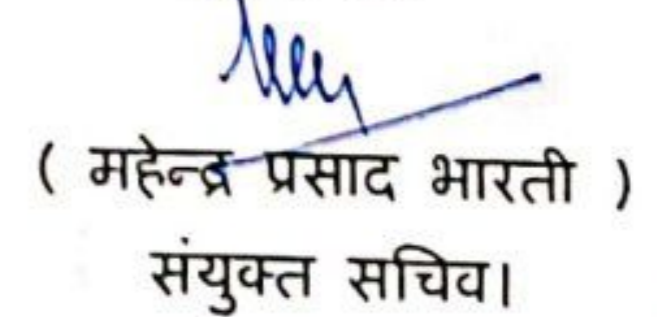 ( महेन्द्र प्रसाद भारती )
संयुक्त सचिव।